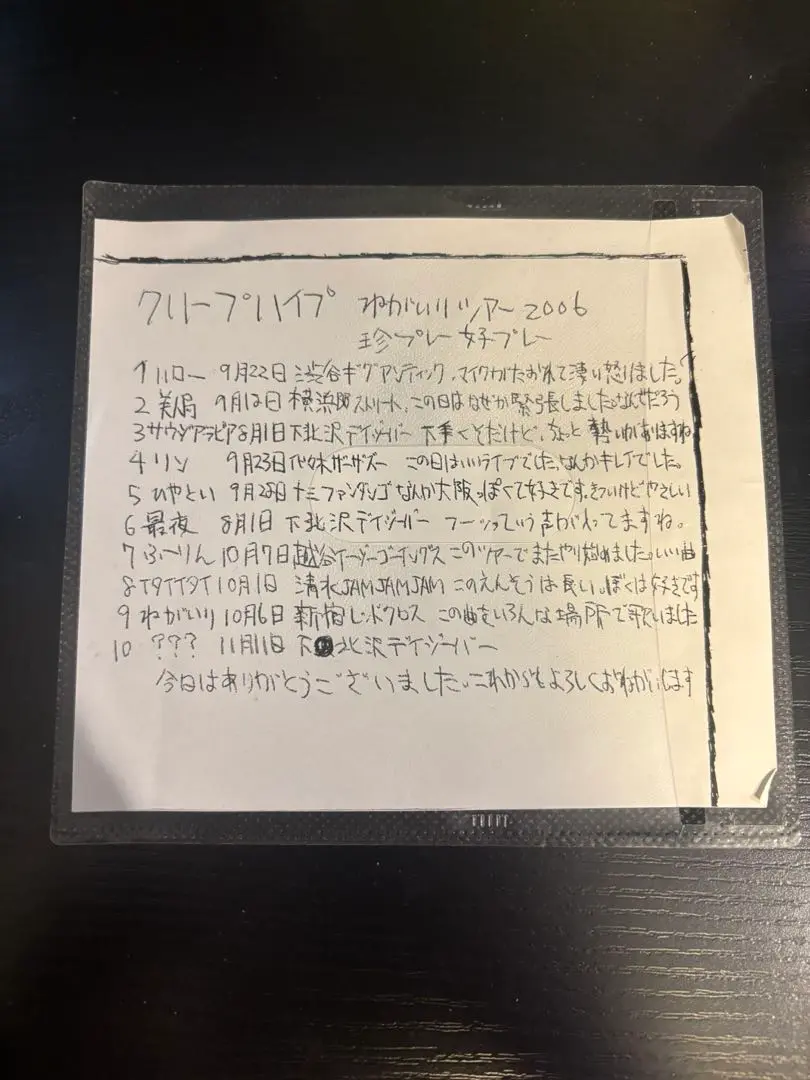 クリープハイプ ねがいりツアー2006
珍プレー好プレー
1 ハロー 9月22日 渋谷ギグアンティック、マイクがたおれて凄い怒りました。
2 美局 9月12日 横浜 ストリート、この日はなぜか緊張しました
3 サウダアラビア 8月1日 下北沢デイジーバー 下手くそだけど、ちょっと勢いがありますね
4 リン 9月23日 代々木ザーザズー この日はいいライブでした、なんかキレイでした。
5 ひやとい 9月28日 十三ファンダンゴ なんか大阪っぽくて好きです。きついけどやさしい
6 最夜 8月1日 下北沢デイジーバー フーッっていう声が入ってますね。
7 ふーりん 10月7日 越谷イージーゴーイングス このツアーでまたやり始めました。いい曲
8 イタイイタイ 10月1日 清水JAMJAMJAM このえんそうは長い。ぼくは好きです
9 ねがいり 10月6日 新宿レッドクロス この曲をいろんな場所で歌いました
10 ??? 11月11日 下北沢デイジーバー
今日はありがとうございました。これからもよろしくおねがいします